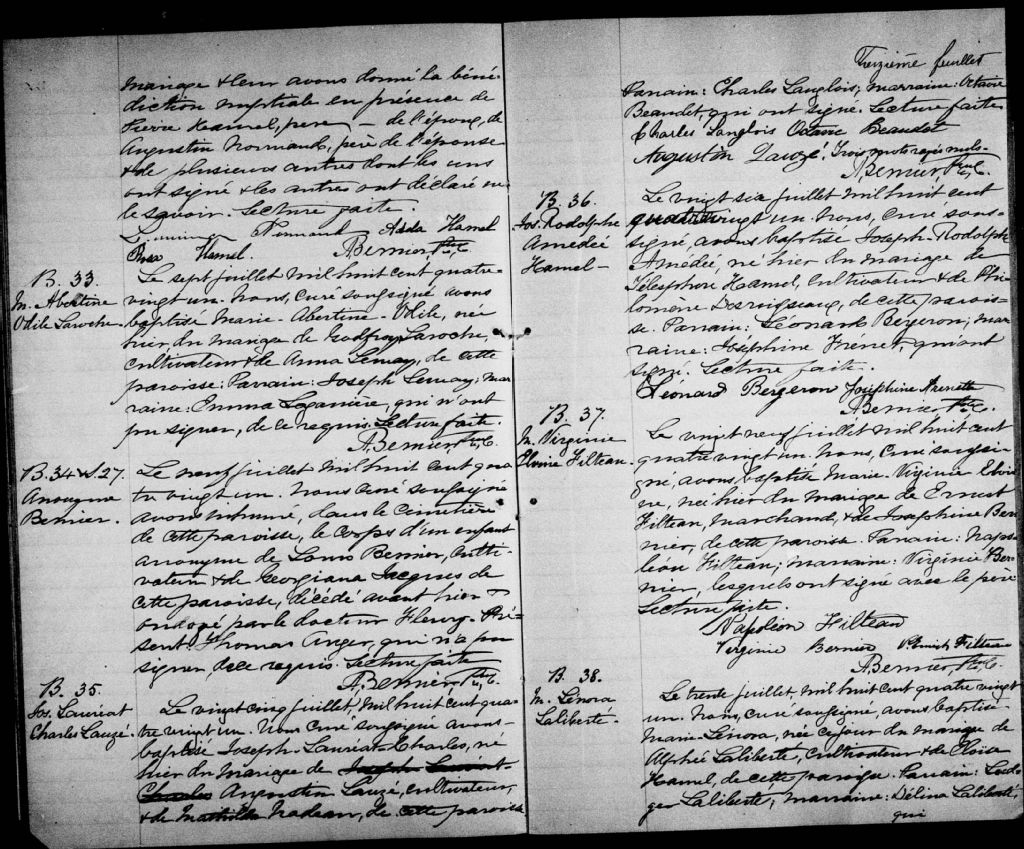 mariage & leur avons donné la béné-
diction nuptiale en présence de
Pierre Hamel, père — de l'époux, de
Augustin Normand, père de l'épouse
& de plusieurs autres dont les uns
ont signé & les autres ont déclaré ne
le savoir. Lecture faite.
Normand Aída Hamel
Hamel. A. Bernier, Ptre, C.
B. 33.
M. Abertine
Odile Laroche.
Le sept juillet mil huit cent quatre-
vingt un. Nous, curé soussigné avons
baptisé Marie-Abertine-Odile, née
hier, du mariage de Godfroy Laroche,
cultivateur & de Anna Lemay, de cette
paroisse: Parrain: Joseph Lemay; mar-
raine: Emma Laganière, qui n'ont
pu signer, de ce requis. Lecture faite.
A. Bernier, Ptre, C.
B. 34 & S. 27.
Anonyme
Bernier.
Le neuf juillet mil huit cent qua-
tre vingt un. Nous curé soussigné
avons inhumé, dans le cimetière
de cette paroisse, le corps d'un enfant
anonyme de Louis Bernier, culti-
vateur & de Georgiana Jacques de
cette paroisse, décédé avant hier &
ondoyé par le docteur Fleury. Pré-
sent: Thomas Auger, qui n'a pu
signer, de ce requis. Lecture faite
A. Bernier, Ptre, C.
B. 35.
Jos. Lauréat
Charles Lauzé.
Le vingt cinq juillet, mil huit cent qua-
tre vingt un. Nous curé soussigné avons
baptisé Joseph-Lauréat-Charles, né
hier du mariage de Joseph Lauréat-
Charles Augustin Lauzé, cultivateur,
& de Mathilde Nadeau, de cette paroisse
Treizième feuillet
Parrain: Charles Langlois; marraine: Octavie
Beaudet, qui ont signé. Lecture faite
Charles Langlois Octavie Beaudet
Augustin Lauzé. Trois mots rayés nuls.
A. Bernier, Ptre, C.
B. 36.
Jos. Rodolphe
Amédée
Hamel —
Le vingt six juillet mil huit cent
quatre vingt un. Nous, curé sous-
signé, avons baptisé Joseph-Rodolphe
Amédée, né hier du mariage de
Télesphore Hamel, cultivateur & de Phi-
lomène Desruisseaux, de cette parois-
se. Parrain: Léonard Bergeron; mar-
raine: Joséphine Frenet, qui ont
signé. Lecture faite.
Léonard Bergeron Joséphine Frenette
A. Bernier, Ptre, C.
B. 37.
M. Virginie
Elvine Filteau.
Le vingt neuf juillet mil huit cent
quatre vingt un. Nous, Curé soussi-
gné, avons baptisé Marie-Virginie Elvi-
ne, née hier du mariage de Ernest
Filteau, marchand, & de Joséphine Ber-
nier, de cette paroisse. Parrain: Napo-
léon Filteau; marraine: Virginie Ber-
nier, lesquels ont signé avec le père
Lecture faite.
Napoléon Filteau
Virginie Bernier Filteau
A. Bernier, Ptre, C.
B. 38.
M. Lénora
Laliberté.
Le trente juillet, mil huit cent quatre vingt
un. Nous, curé soussigné, avons baptisé
Marie-Lénora, née ce jour du mariage de
Alphée Laliberté, cultivateur & de Eloise
Hamel, de cette paroisse. Parrain: Laud-
ger Laliberté; marraine: Délina Laliberté,
qui